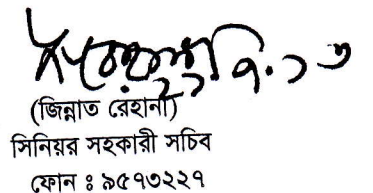 ২১.৭.১৩
(জিন্নাত রেহানা)
সিনিয়র সহকারী সচিব
ফোন ঃ ৯৫৭৩২২৭